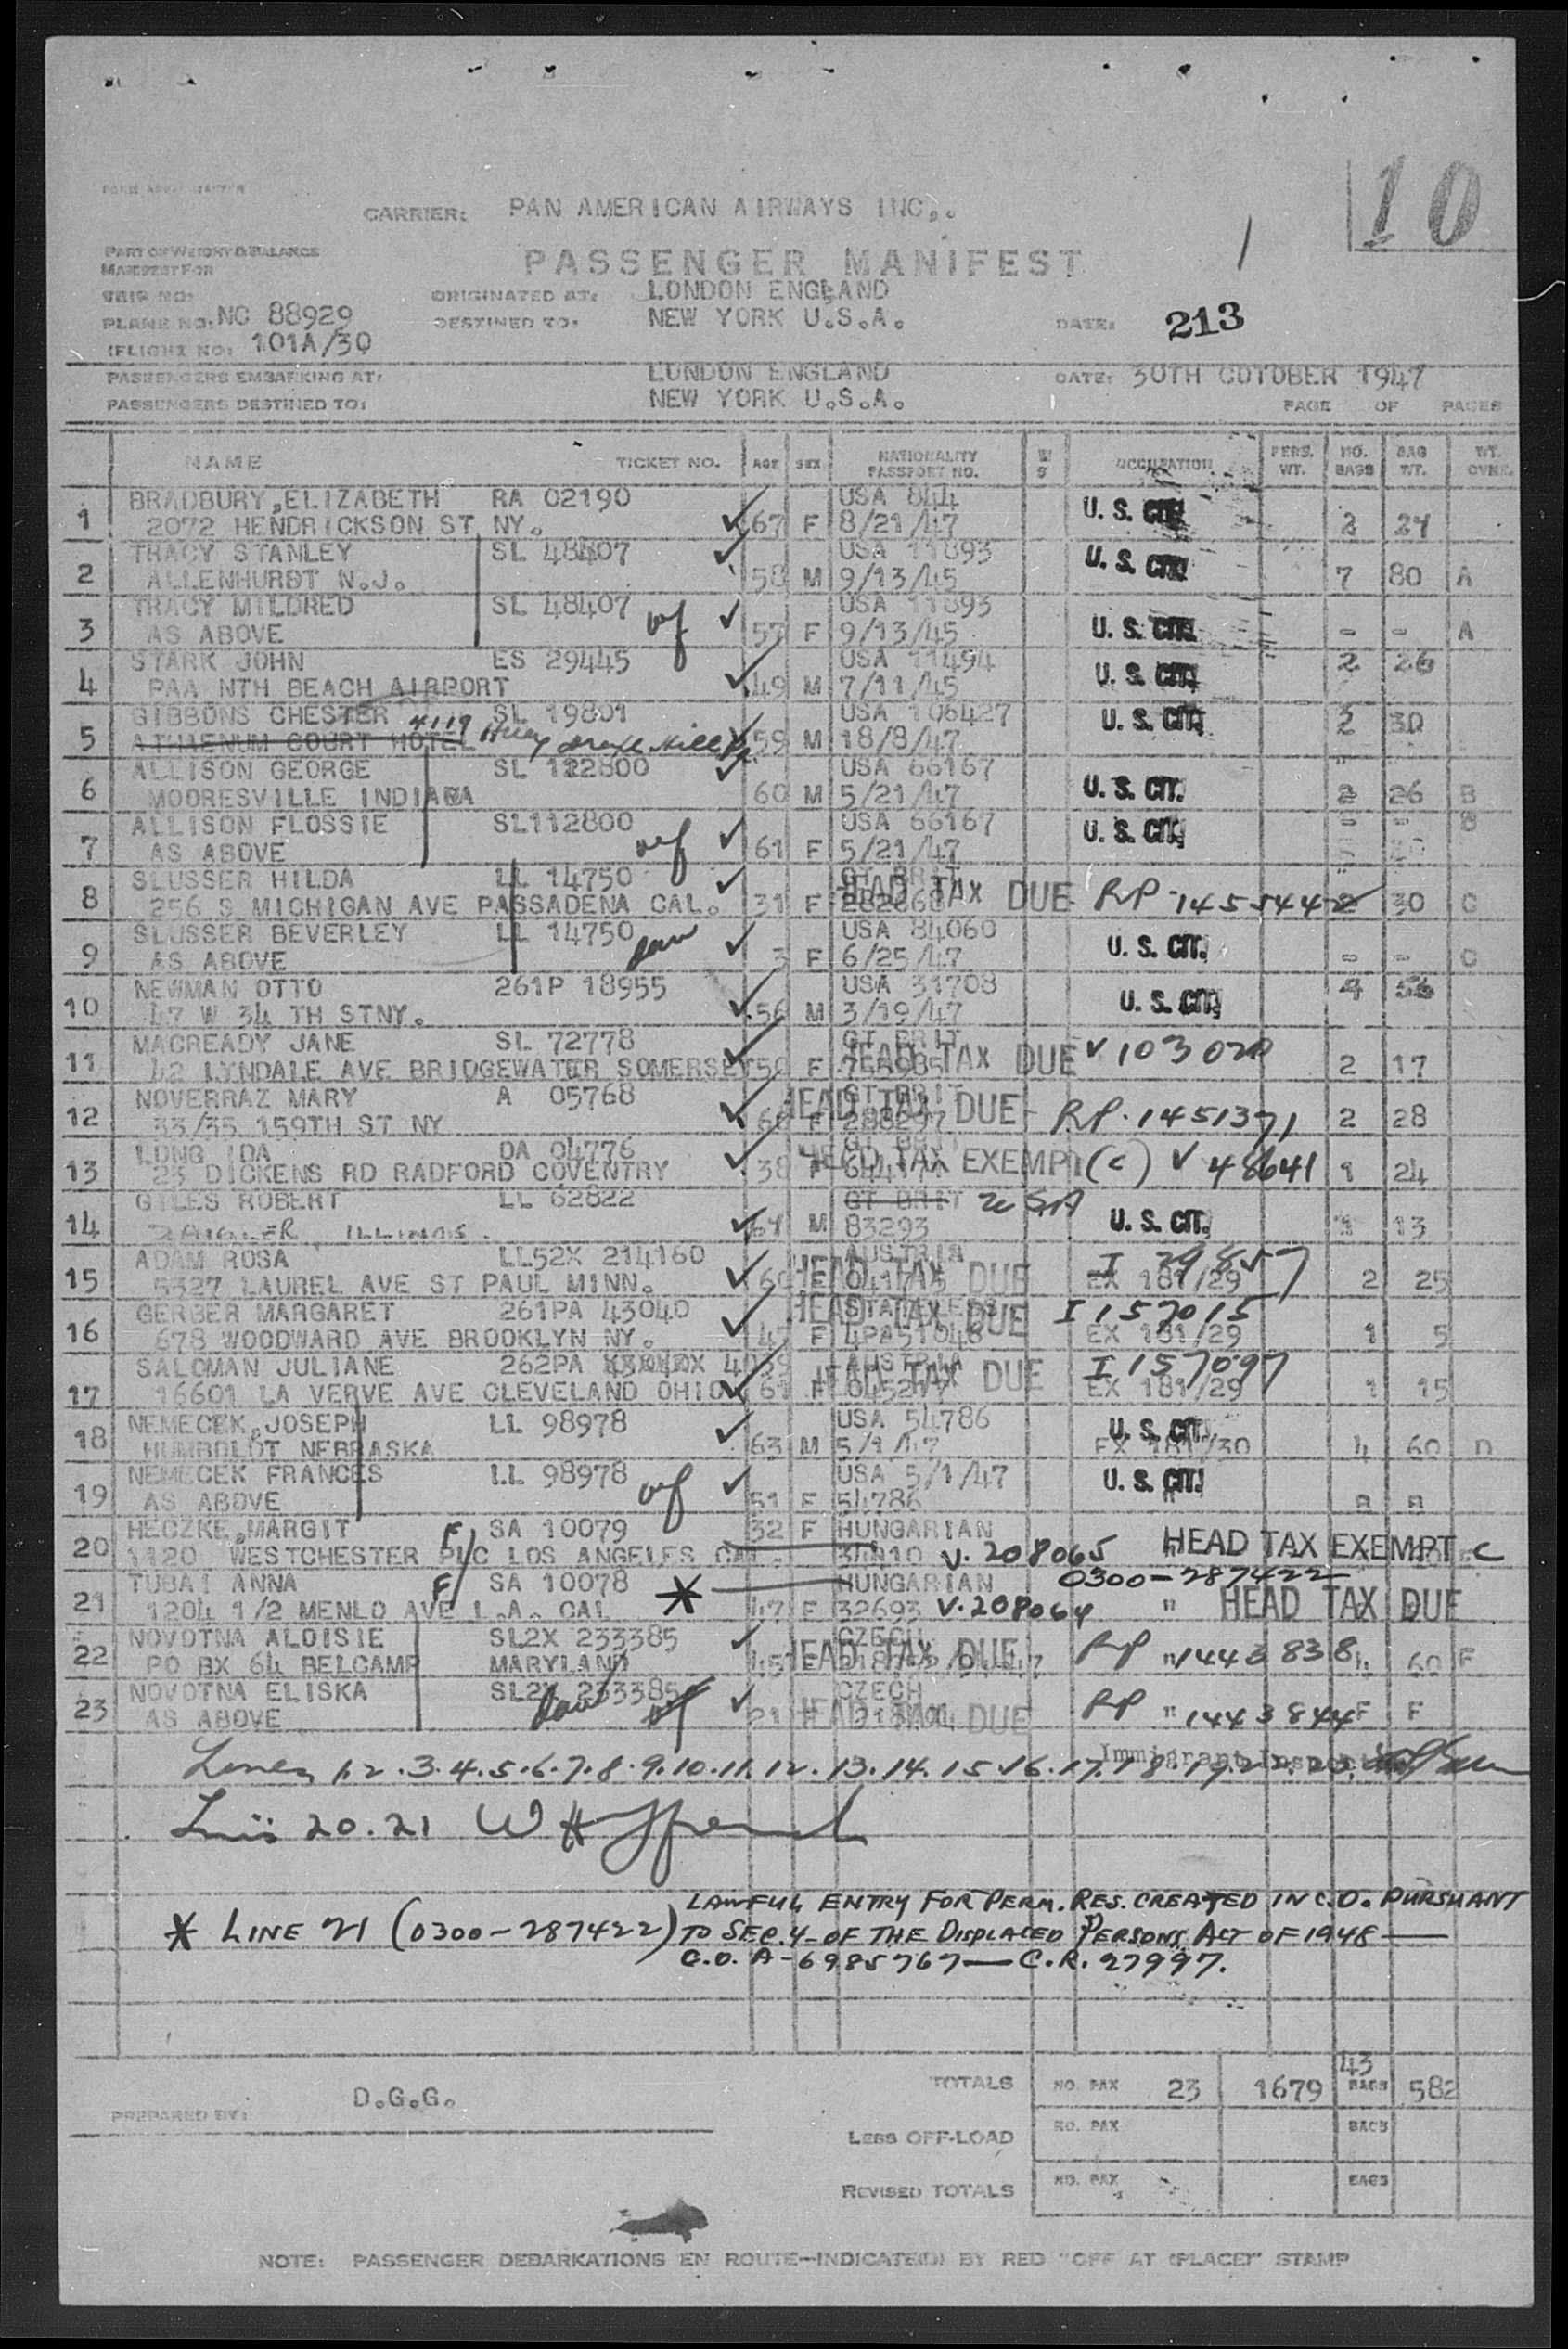 10
CARRIER: PAN AMERICAN AIRWAYS INC..
PART OF WEIGHT & BALANCE
MANIFEST FOR
PASSENGER MANIFEST
TRIP NO:
ORIGINATED AT: LONDON ENGLAND
PLANE NO: NC 88929
DESTINED TO: NEW YORK U.S.A.
DATE: 213
(FLIGHT NO: 101A/30
PASSENGERS EMBARKING AT: LONDON ENGLAND
DATE: 30TH OCTOBER 1947
PASSENGERS DESTINED TO: NEW YORK U.S.A.
PAGE OF PAGES
NAME TICKET NO. AGE SEX NATIONALITY PASSPORT NO. W S OCCUPATION PERS. WT. NO. BAGS BAG WT. WT. OVNE.
1 BRADBURY,ELIZABETH RA 02190 USA 844 U. S. CIT.
2072 HENDRICKSON ST NY. 67 F 8/21/47 2 24
2 TRACY STANLEY SL 48407 USA 11893 U. S. CIT.
ALLENHURST N.J. 58 M 9/13/45 7 80 A
3 TRACY MILDRED SL 48407 USA 11893
AS ABOVE 57 F 9/13/45 U. S. CIT. - - A
4 STARK JOHN ES 29445 USA 11494 2 26
PAA NTH BEACH AIRPORT 49 M 7/11/45 U. S. CIT.
5 GIBBONS CHESTER SL 19801 USA 106427 U. S. CIT. 30
4119
ATHAENUM COURT HOTEL 59 M 18/8/47
6 ALLISON GEORGE SL 122800 USA 66167
MOORESVILLE INDIANA 60 M 5/21/47 U. S. CIT. 2 26 B
7 ALLISON FLOSSIE SL112800 USA 66167 U. S. CIT. - - B
AS ABOVE 61 F 5/21/47
8 SLUSSER HILDA LL 14750 GT BRIT
256 S MICHIGAN AVE PASSADENA CAL. 31 F HEAD TAX DUE RP-1455442 30 C
9 SLUSSER BEVERLEY LL 14750 USA 84060
AS ABOVE 3 F 6/25/47 U. S. CIT. - - C
10 NEWMAN OTTO 261P 18955 USA 31708 4 56
47 W 34 TH STNY. 56 M 3/19/47 U. S. CIT.
11 MACREADY JANE SL 72778 GT BRIT HEAD TAX DUE V 103020
42 LYNDALE AVE BRIDGEWATER SOMERSET 50 F 2 17
12 NOVERRAZ MARY A 05768 GT BRIT HEAD TAX DUE
33/35 159TH ST NY F 288297 RP.1451371 2 28
13 LONG IDA OA 04776 GT BRIT
23 DICKENS RD RADFORD COVENTRY 38 F HEAD TAX EXEMPT (C) V 48641 1 24
14 GILES ROBERT LL 62822 GT BRIT USA
ZAIGLER, ILLINOIS. M 83293 U. S. CIT. 1 13
15 ADAM ROSA LL52X 214160 AUSTRIA I 29857
5327 LAUREL AVE ST PAUL MINN. 60 F HEAD TAX DUE EX 181/29 2 25
16 GERBER MARGARET 261PA 43040 STATELESS I 157015
678 WOODWARD AVE BROOKLYN NY. 47 F HEAD TAX DUE EX 181/29 1 5
17 SALOMAN JULIANE 262PA 4039 AUSTRIA I 157097
16601 LA VERVE AVE CLEVELAND OHIO 61 F HEAD TAX DUE EX 181/29 1 15
18 NEMECEK,JOSEPH LL 98978 USA 54786 U. S. CIT.
HUMBOLDT NEBRASKA 63 M 5/1/47 EX 181/30 4 60 D
19 NEMECEK FRANCES LL 98978 USA 5/1/47 U. S. CIT.
AS ABOVE 51 F 54786
20 HECZKE,MARGIT F SA 10079 32 F HUNGARIAN HEAD TAX EXEMPT C
1120 WESTCHESTER PLC LOS ANGELES CAL. V. 208065
21 TUBAI ANNA F SA 10078 * HUNGARIAN 0300-287422
1204 1/2 MENLO AVE L.A. CAL 47 F 32693 V.208064 " HEAD TAX DUE
22 NOVOTNA ALOISIE SL2X 233385 CZECH
PO BX 64 BELCAMP MARYLAND 45 F HEAD TAX DUE RP "1443838 4 60 F
23 NOVOTNA ELISKA SL2X 233385 CZECH
AS ABOVE 21 F HEAD TAX DUE RP "1443844 F F
Immigrant Inspector
Lines 1.2.3.4.5.6.7.8.9.10.11.12.13.14.15.16.17.18.19.22.23.
Lines 20.21
LAWFUL ENTRY FOR PERM. RES. CREATED IN C.O. PURSUANT
* LINE 21 (0300-287422) TO SEC. 4 OF THE DISPLACED PERSONS ACT OF 1948
C.O. A-6985767—C.R. 27997.
TOTALS NO. PAX 23 1679 43 BAGS 582
PREPARED BY: D.G.G.
LESS OFF-LOAD NO. PAX BAGS
REVISED TOTALS NO. PAX BAGS
NOTE: PASSENGER DEBARKATIONS EN ROUTE—INDICATE(D) BY RED "OFF AT (PLACE)" STAMP